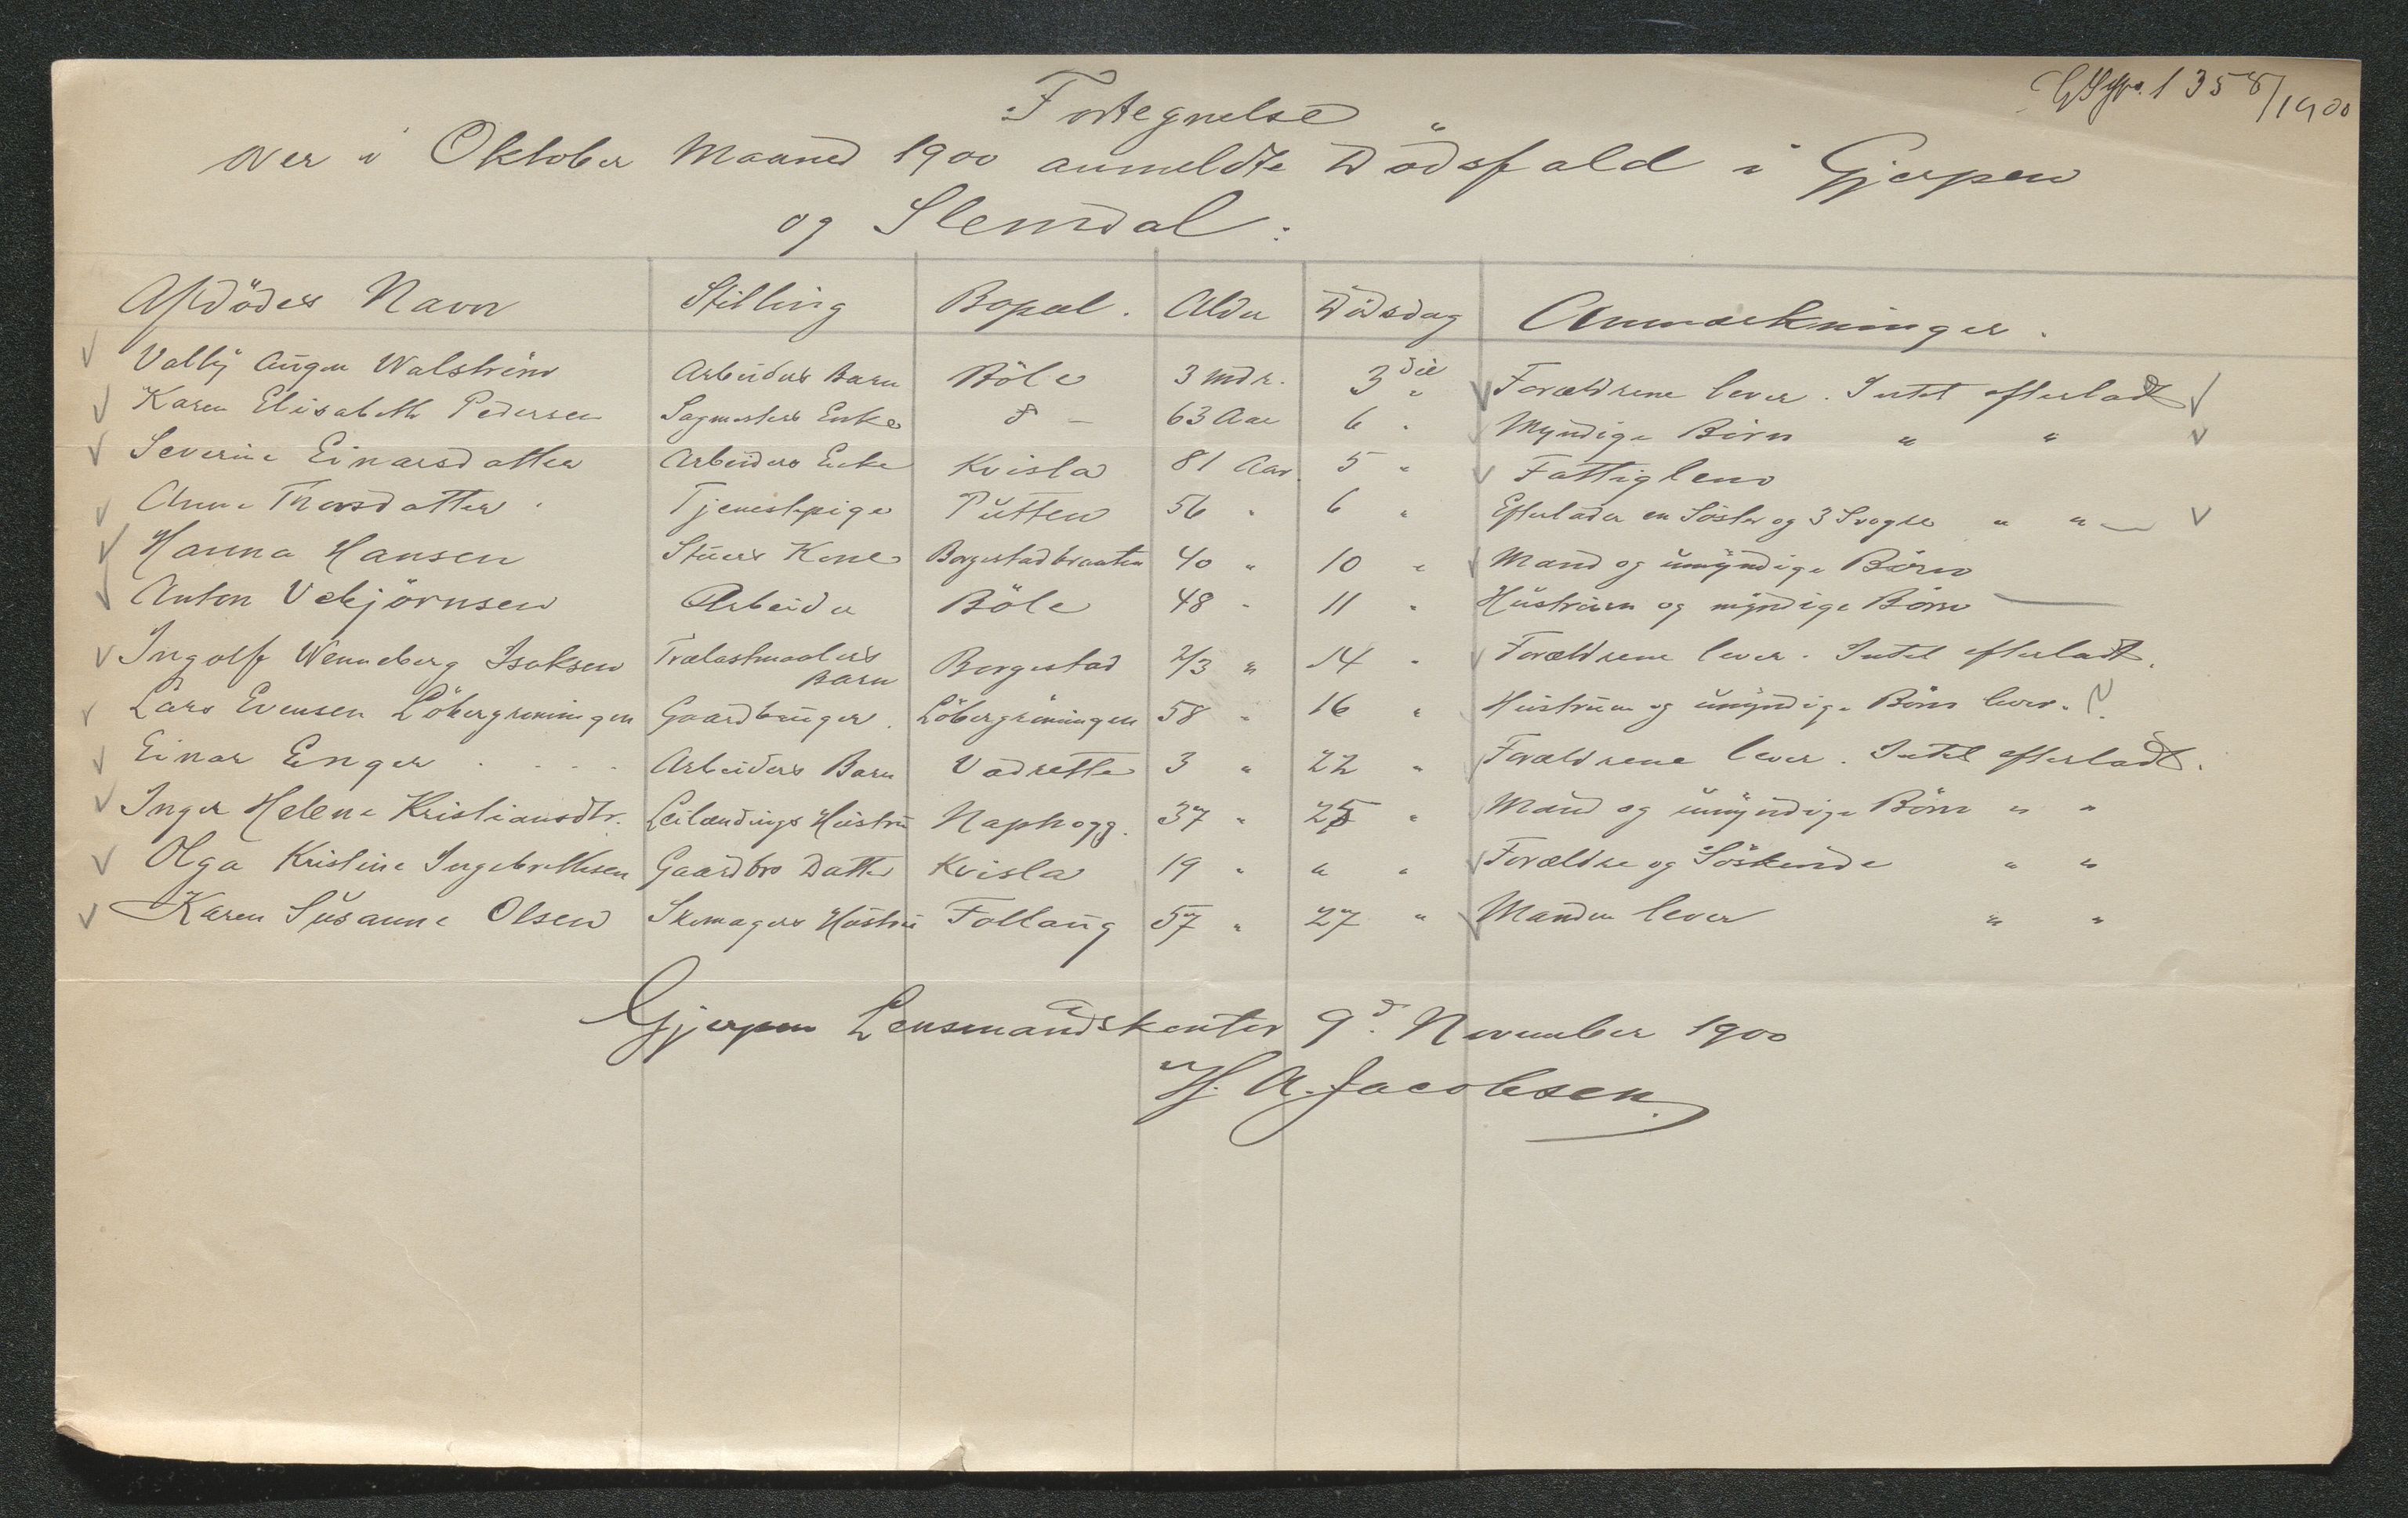 1358/1900
Fortegnelse
over i Oktober Maaned 1900 anmeldte Dödsfald i Gjerpen
og Slemdal:
Afdödes Navn Stilling Bopæl. Alder Dödsdag Anmærkninger.
Vally Augen Walström Arbeiders Barn Böle 3 Mdr. 3die " Forældrene lever. Intet efterladt
Karen Elisabeth Pedersen Sagmesters Enke d - 63 Aar 6 " Myndige Börn " "
Severine Einarsdatter Arbeiders Enke Kvisla 81 Aar 5 " Fattiglem
Anne Thorsdatter Tjenestepige Putten 56 " 6 " Efterlader en Söster og 3 Svogre " "
Hanna Hansen Stuers Kone Borgestadbraaten 40 " 10 " Mand og umyndige Börn
Anton Vebjörnsen Arbeider Böle 48 " 11 " Hustruen og myndige Börn
Ingolf Wenneberg Isaksen Trælastmaalers Barn Borgestad 2/3 " 14 " Forældrene lever. Intet efterladt.
Lars Evensen Löbergröningen Gaardbruger. Löbergröningen 58 " 16 " Hustruen og umyndige Börn lever. ?
Einar Enger . . . . Arbeiders Barn Vadrette 3 " 22 " Forældrene lever. Intet efterladt.
Inger Helene Kristiansdtr. Leilændings Hustru Naphogg. 37 " 25 " Mand og umyndige Börn " "
Olga Kristine Ingebrethsen Gaardbrs Datter Kvisla 19 " " " Forældre og Söskende " "
Karen Susanne Olsen Skomagers Hustru Follaug 57 " 27 " Manden lever " "
Gjerpen Lensmandskontor 9d. November 1900
H. A. Jacobsen.